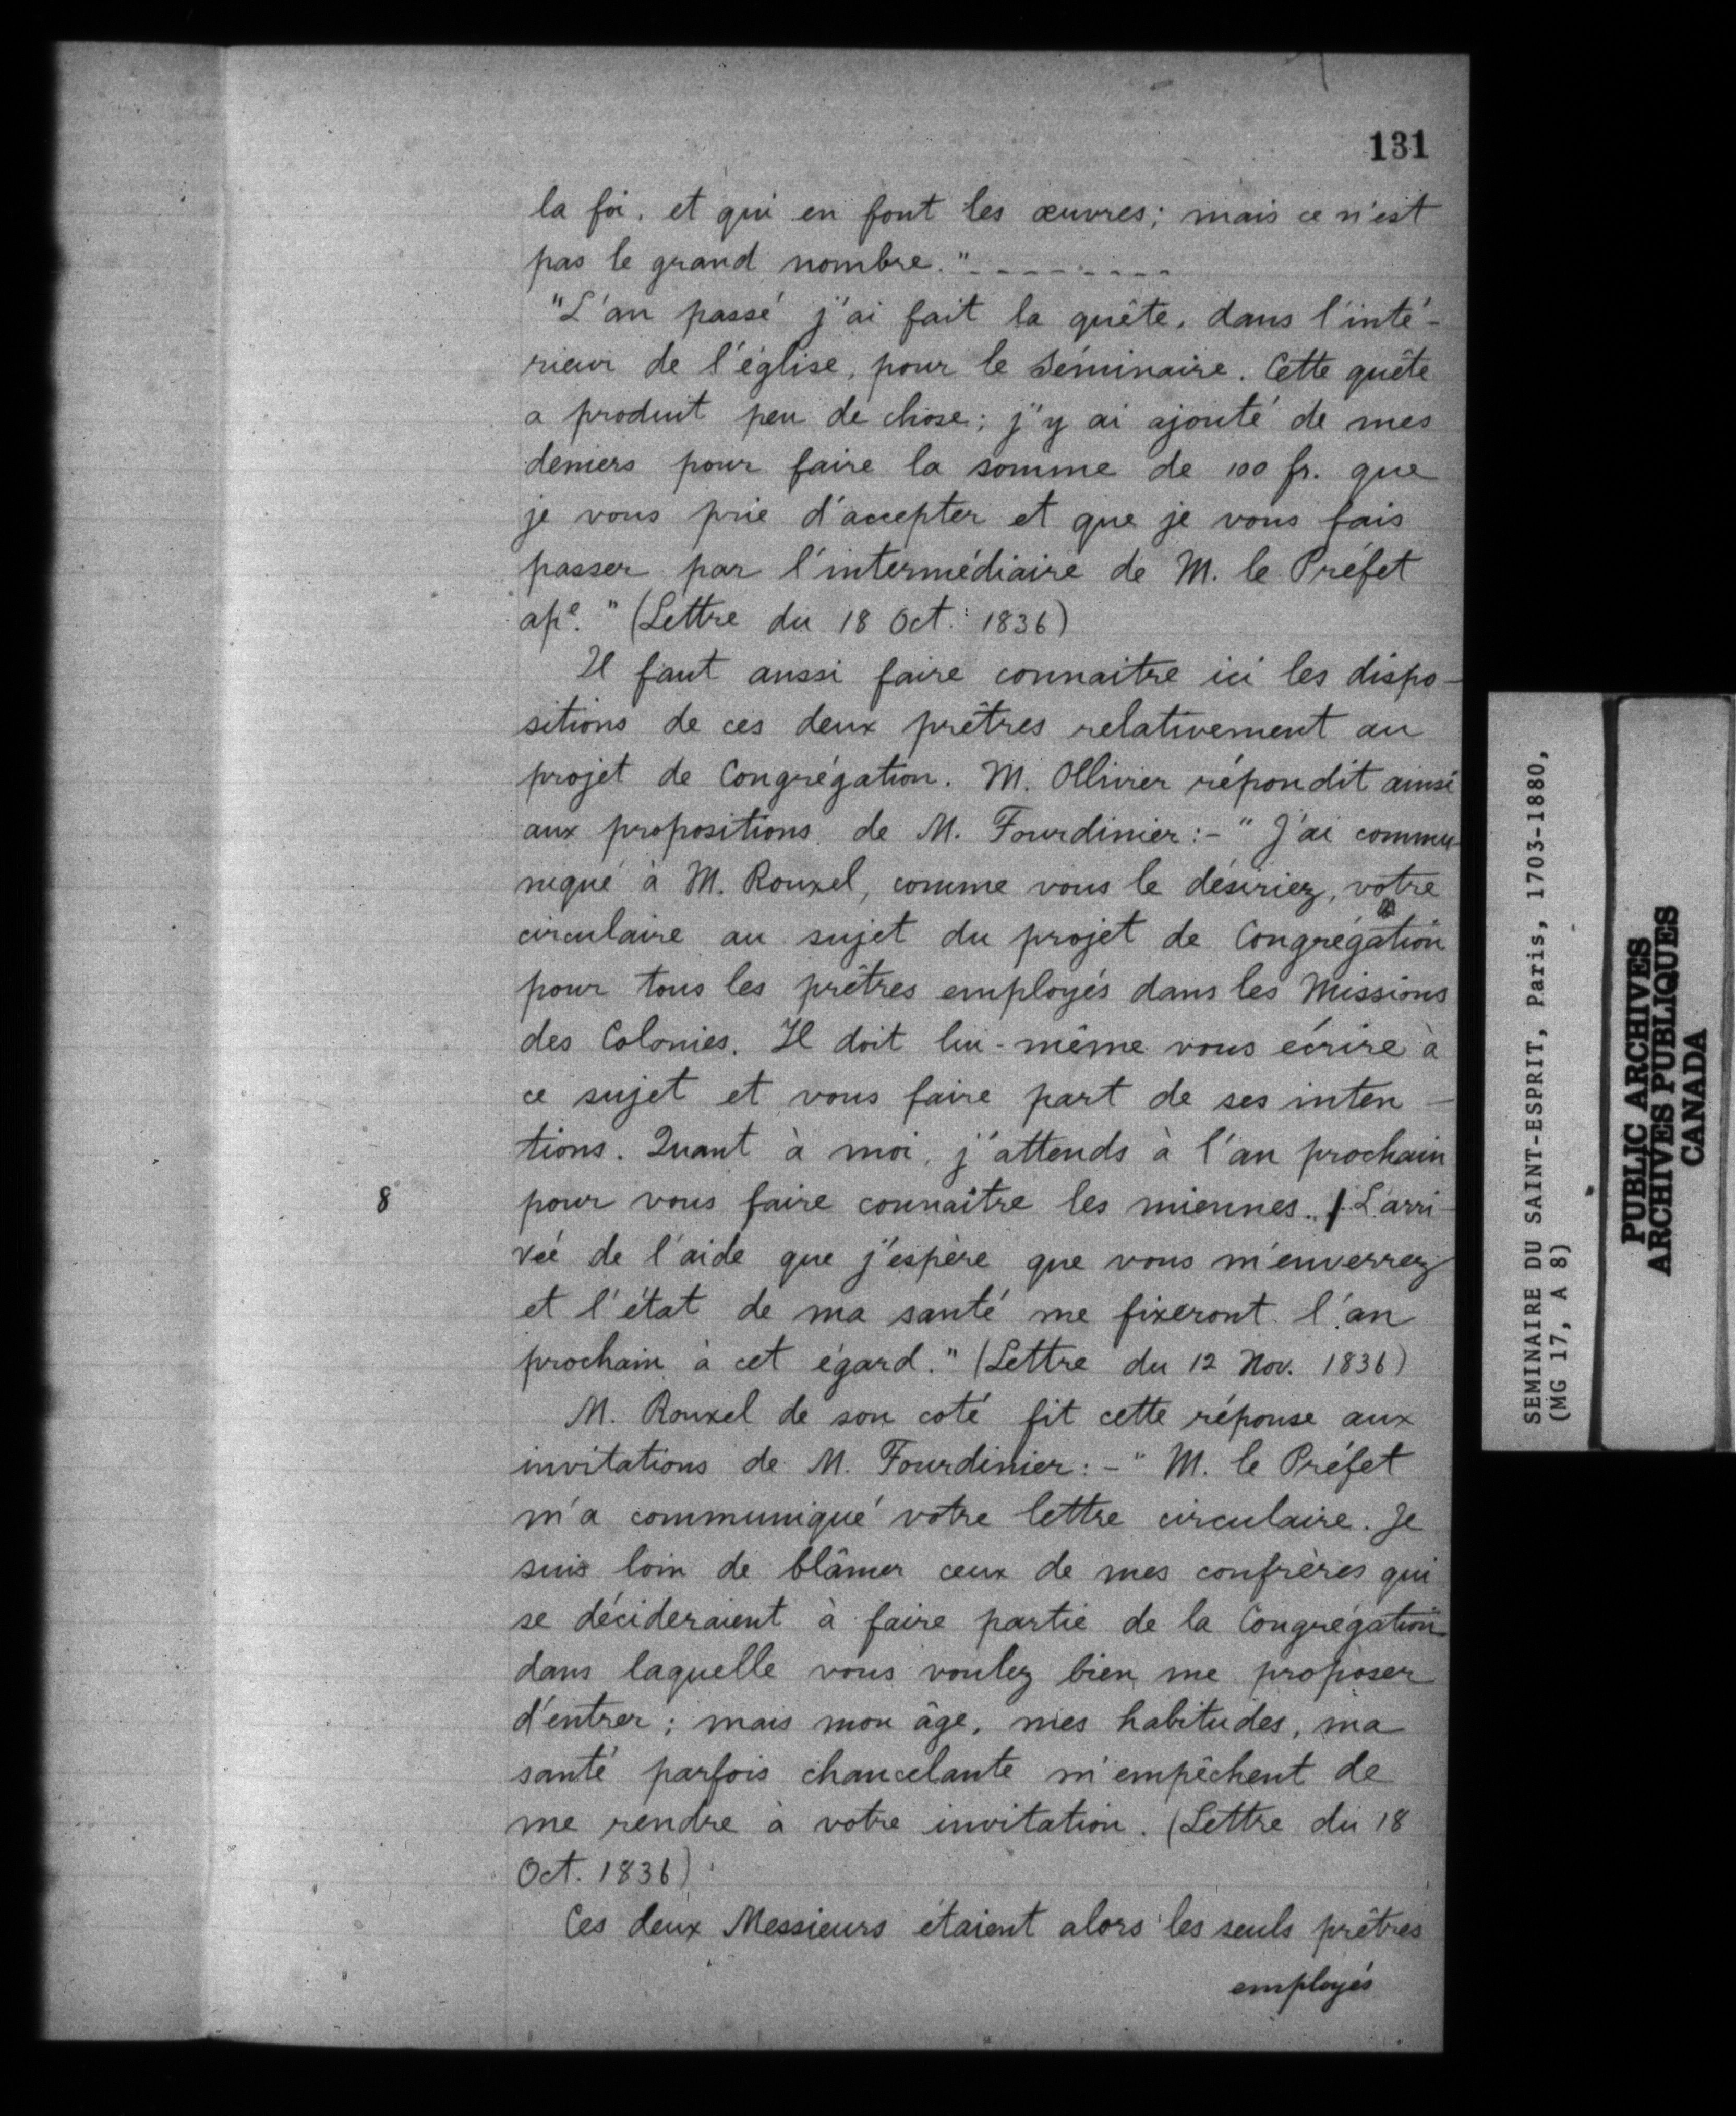 131
la foi, et qui en font les œuvres; mais ce n'est
pas le grand nombre."---------
"L'an passé j'ai fait la quête, dans l'inté-
rieur de l'église, pour le Séminaire. Cette quête
a produit peu de chose; j'y ai ajouté de mes
deniers pour faire la somme de 100 fr. que
je vous prie d'accepter et que je vous fais
passer par l'intermédiaire de M. le Préfet
ap<sup>e</sup>." (Lettre du 18 Oct. 1836)
Il faut aussi faire connaitre ici les dispo-
sitions de ces deux prêtres relativement au
projet de Congrégation. M. Ollivier répondit ainsi
aux propositions de M. Fourdinier:-"J'ai commu-
niqué à M. Rouxel, comme vous le désiriez, votre
circulaire au sujet du projet de Congrégation
pour tous les prêtres employés dans les Missions
des Colonies. Il doit lui-même vous écrire à
ce sujet et vous faire part de ses inten-
tions. Quant à moi, j'attends à l'an prochain
8
pour vous faire connaître les miennes. / L'arri-
vée de l'aide que j'espère que vous m'enverrez
et l'état de ma santé me fixeront l'an
prochain à cet égard." (Lettre du 12 Nov. 1836)
M. Rouxel de son coté fit cette réponse aux
invitations de M. Fourdinier:-"M. le Préfet
m'a communiqué votre lettre circulaire. Je
suis loin de blâmer ceux de mes confrères qui
se décideraient à faire partie de la Congrégation
dans laquelle vous voulez bien me proposer
d'entrer; mais mon âge, mes habitudes, ma
santé parfois chancelante m'empêchent de
me rendre à votre invitation. (Lettre du 18
Oct. 1836)
Ces deux Messieurs étaient alors les seuls prêtres
employés
SEMINAIRE DU SAINT-ESPRIT, Paris, 1703-1880,
(MG 17, A 8)
PUBLIC ARCHIVES
ARCHIVES PUBLIQUES
CANADA